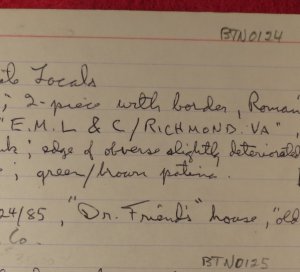 BTN0124
Locals
; 2-piece with border, Roman
"E.M.L & C/RICHMOND.VA"
; edge of obverse slightly deteriorated
; green/brown patina.
24/85, "Dr. Friend's" house, "old
Co.
BTN0125